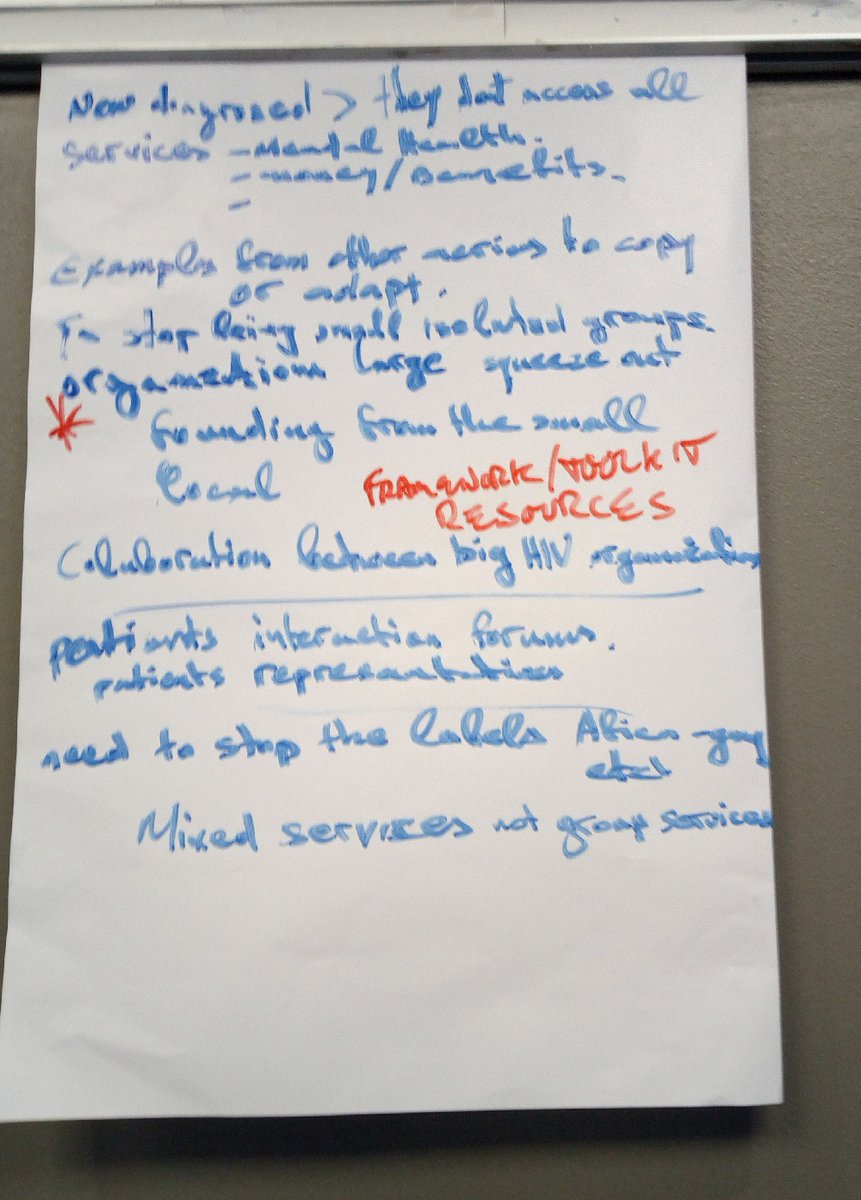 New diagnosed > they dont access all
services - Mental Health.
- money/Benefits.
-
Examples from other to copy
or adapt.
To stop being small isolated groups.
organisations large squeeze out
* founding from the small
local
FRAMEWORK/TOOLKIT
RESOURCES
Collaboration between big HIV organisations
patients interaction forums.
patients representatives
need to stop the labels -gay
etc
Mixed services not group services